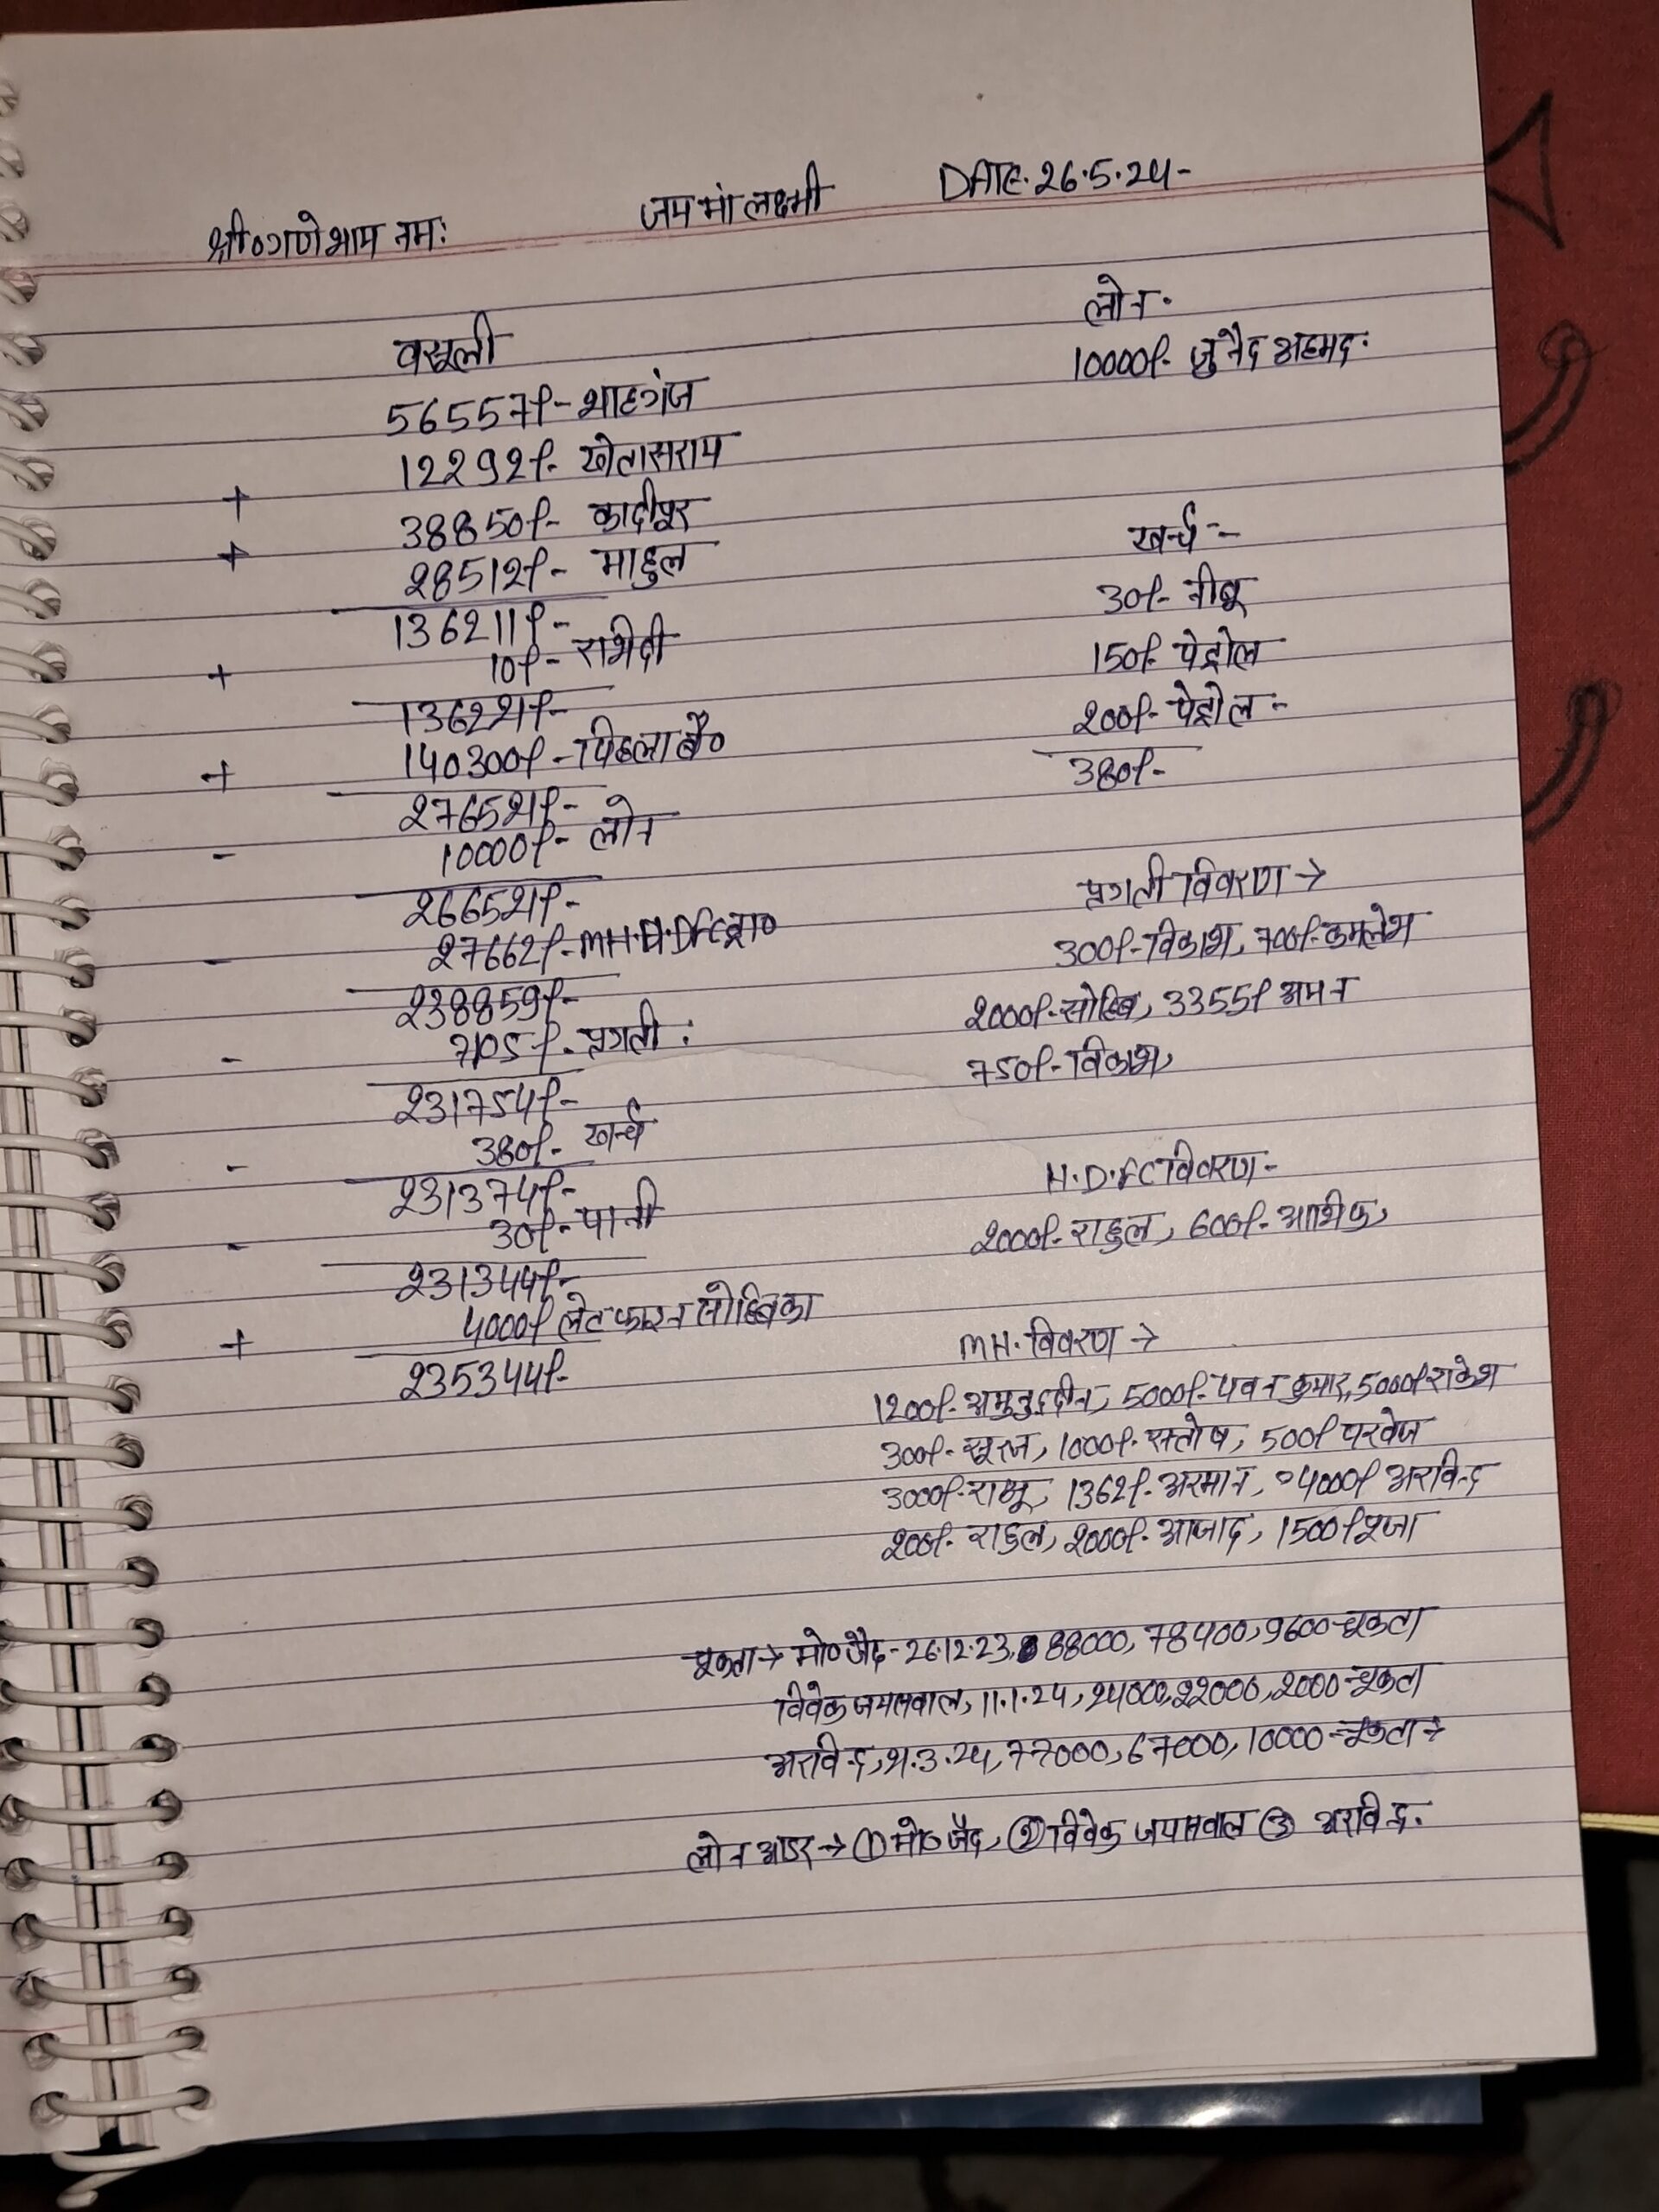 श्री०गणेशाय नमः
जय मां लक्ष्मी
DATE. 26.5.24-
वसूली
56557/- शाहगंज
+ 12292/- खेतासराय
+ 38850/- कादीपुर
28512/- माहुल
136211/-
+ 10/-
136221/-
+ 140300/- पिछला बै०
276521/-
- 10000/- लोन
266521/-
- 27662/- MH.H.DFC
238859/-
- 7105/- प्रगती:
231754/-
- 380/- खर्च
231374/-
- 30/- पानी
231344/-
+ 4000/ लेट फाइन सोहिब का
235344/-
लोन.
10000/- जुनैद अहमद:
खर्च :-
30/- नीबू
150/- पेट्रोल
200/- पेट्रोल :-
380/-
प्रगती विवरण →
300/- विकाश, 700/- कमलेश
2000/- सोहिब, 3355/ अमन
750/- विकाश,
H.D.FC विवरण-
2000/- राहुल, 600/- आशिक,
MH. विवरण →
1200/- अमुनुद्दीन, 5000/- पवन कुमार, 5000/ राकेश
300/- सूरज, 1000/- सन्तोष, 500/ परवेज
3000/- राजू, 1362/- अरमान, 4000/ अरविन्द
200/- राहुल, 2000/- आजाद, 1500/ पूजा
चूकता → मो० जैद - 26.12.23, 88000, 78400, 9600 चूकता
विवेक जयसवाल, 11.1.24, 24000, 22000, 2000 चूकता
अरविन्द, 21.3.24, 77000, 67000, 10000 चूकता →
लोन आडर → ① मो० जैद, ② विवेक जयसवाल ③ अरविन्द.